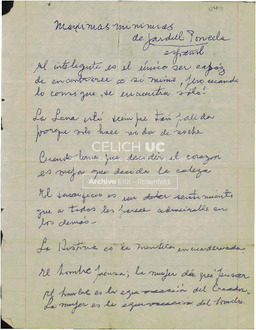 Maximas minimas
de Jardiel Poncela
español
El inteligente es el único ser capaz
de encontrarse a si mismo, pero cuando
lo consigue, se encuentra solo!
La Luna está siempre tan pálida
porque sólo hace vida de noche
Cuando tiene que decidir el corazón
es mejor que decida la cabeza
CELICH UC
Archivo Elliti - Rosenfeld
El sacrificio es un sentimiento
que a todos les parece admirable en
los demás.
La Historia es la mentira encuadernada.
El hombre piensa, la mujer da que pensar
El hombre es la equivocación del Creador.
La mujer es la equivocación del hombre.